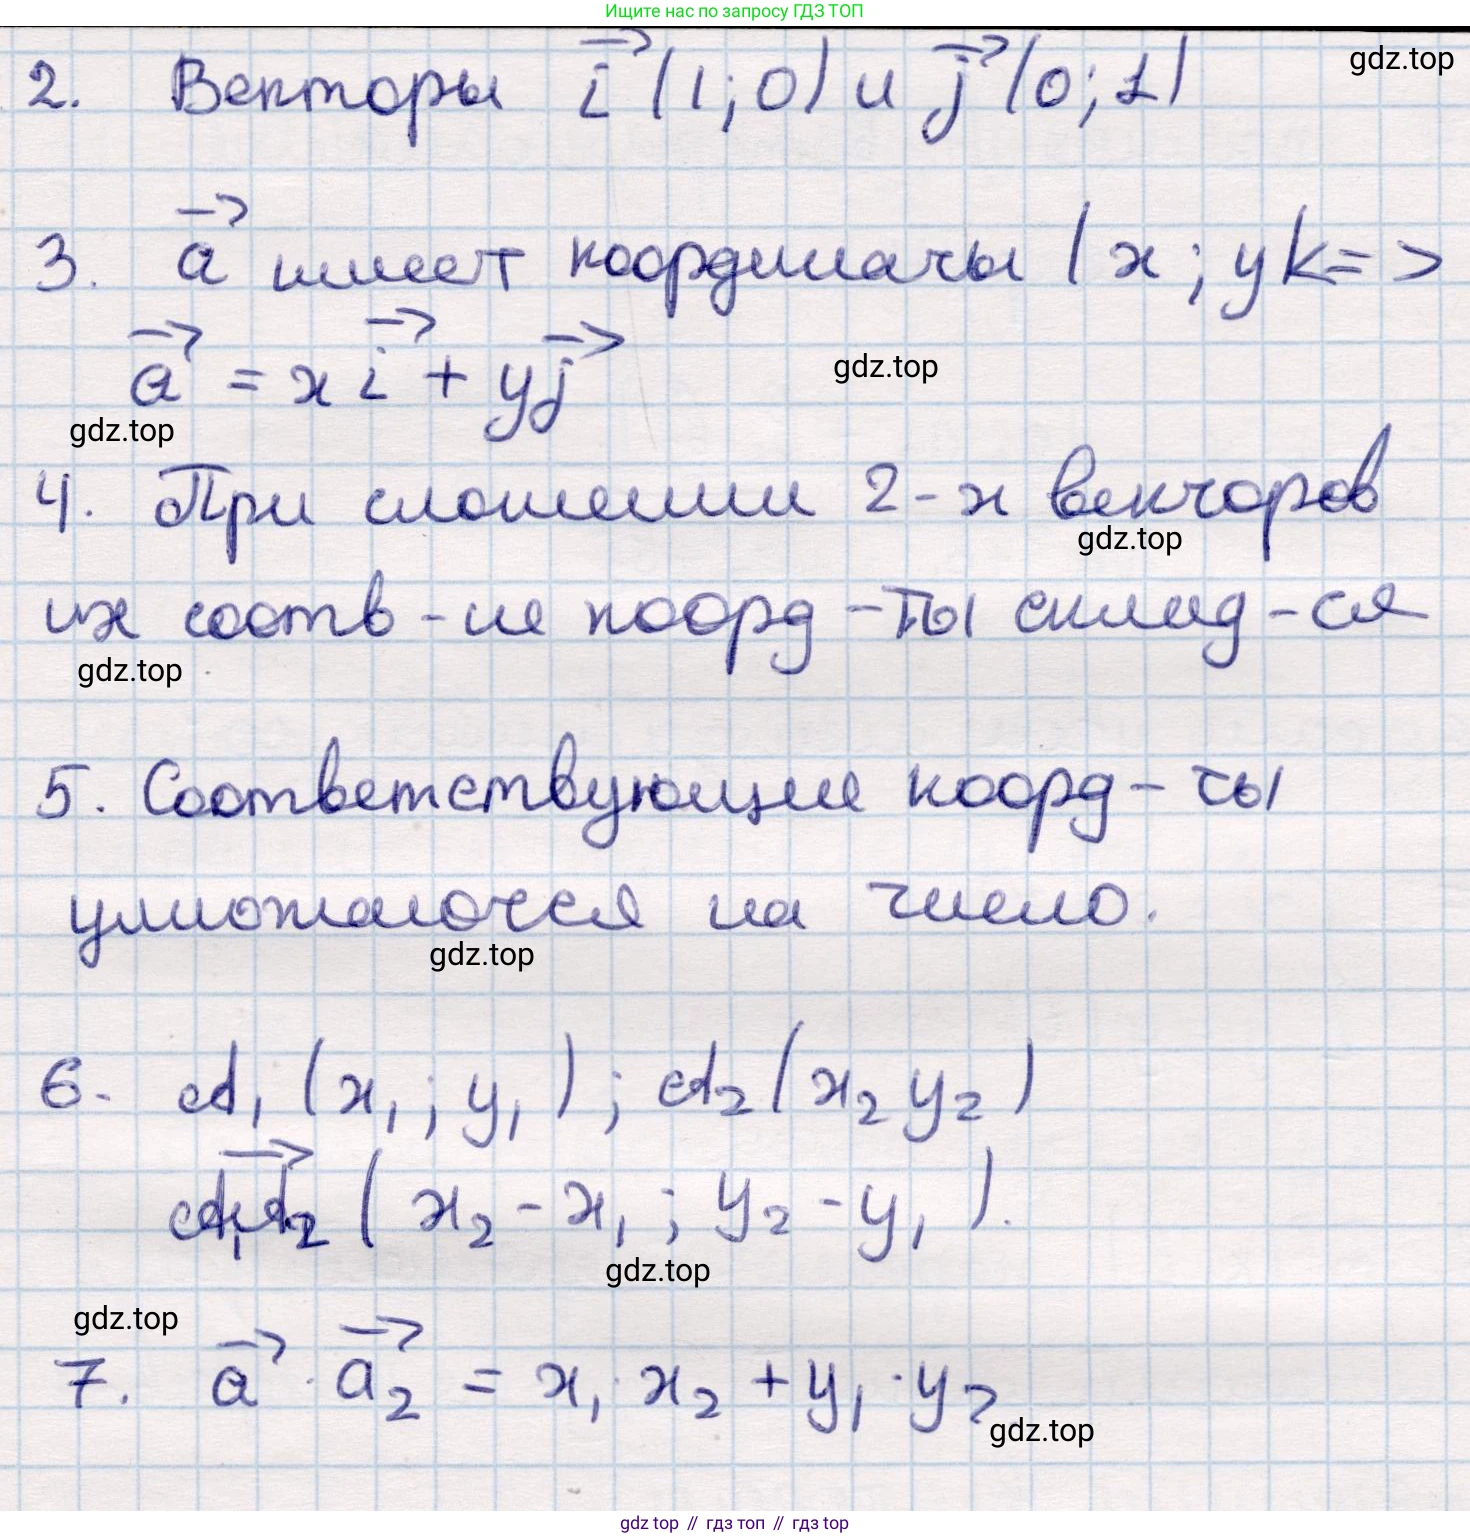 Ищите нас по запросу ГДЗ ТОП
2. Векторы i⃗ (1; 0) и j⃗ (0; 1)
gdz.top
3. a⃗ имеет координаты (x; y) <=>
a⃗ = x i⃗ + y j⃗
gdz.top
gdz.top
4. При сложении 2-х векторов
gdz.top
их соотв-ие коорд-ты склад-ся
gdz.top
5. Соответствующие коорд-ты
умножаются на число.
gdz.top
6. A₁ (x₁; y₁); A₂ (x₂ y₂)
A₁A₂⃗ (x₂ - x₁; y₂ - y₁).
gdz.top
gdz.top
7. a⃗ · a⃗₂ = x₁ · x₂ + y₁ · y₂
gdz.top
gdz top // гдз топ // гдз top